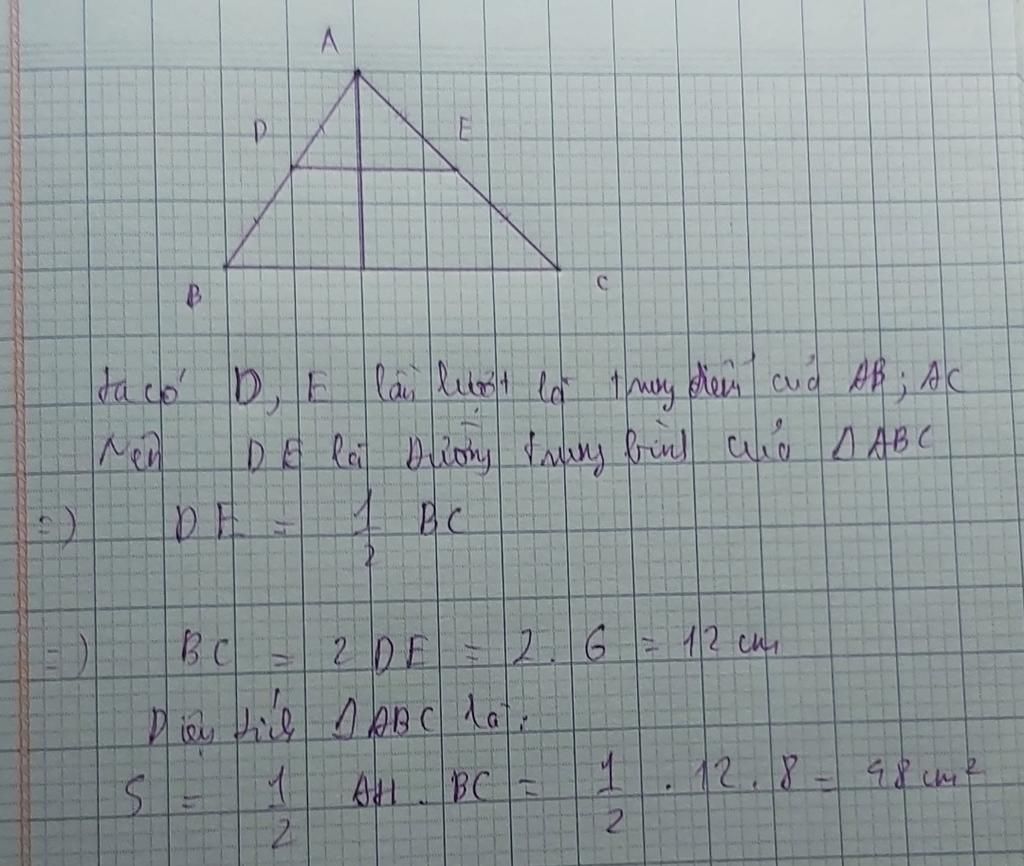 A
D E
B C
ta có D, E lần lượt là trung điểm của AB; AC
Nên DE là Đường trung bình của ΔABC
=) DE = 1/2 BC
=) BC = 2 DE = 2. 6 = 12 cm
Diện tích ΔABC là:
S = 1/2 AH. BC = 1/2 . 12. 8 = 48 cm²